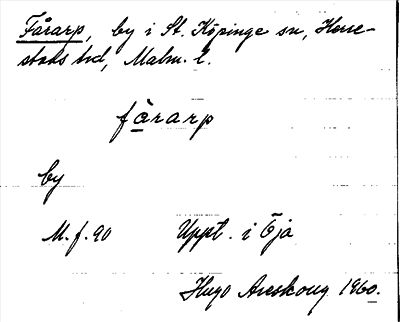 Fårarp, by i St. Köpinge sn, Herre-
stads hd, Malm. l.
fårarp
by
M. f. 90 Uppt. i Öja
Hugo Areskoug 1960.